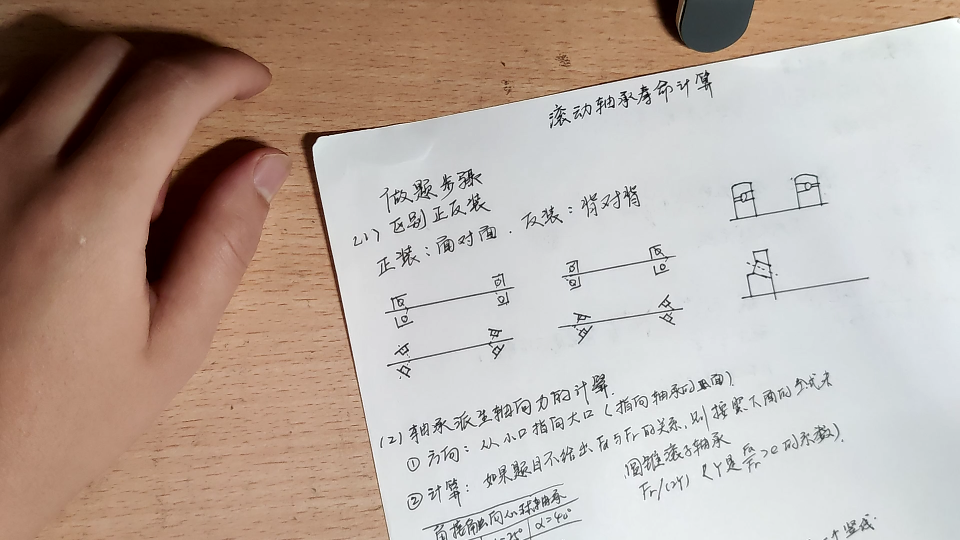 滚动轴承寿命计算
做题步骤
(1) 区别正反装
正装：面对面．反装：背对背
(2) 轴承派生轴向力的计算．
① 方向：从小口指向大口（指向轴承的面）．
② 计算：如果题目不给出 Fd与Fr的关系，则按照下面的公式求
角接触向心球轴承
圆锥滚子轴承
Fr/(2Y) (Y是 Fa/Fr>e 的系数)．
α=25° α=40°
竖线